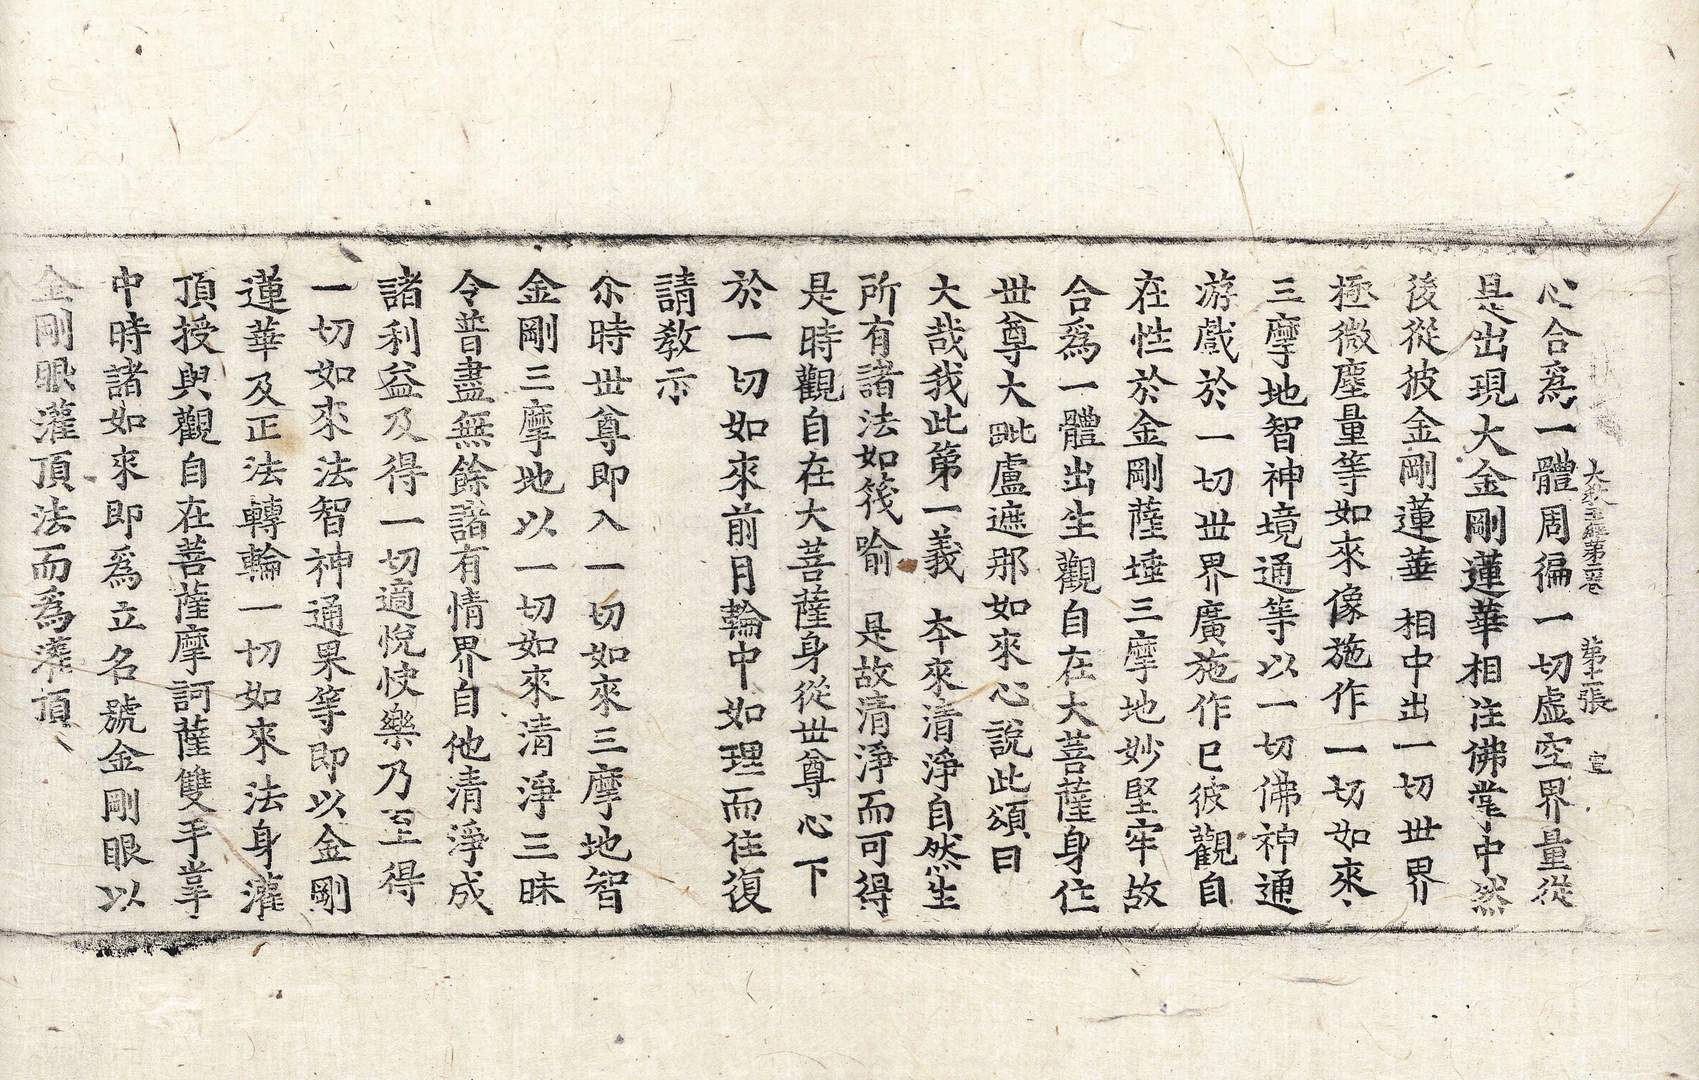 大教王經第二卷 第十二張 宣
心合爲一體周徧一切虛空界量從
是出現大金剛蓮華相注佛掌中然
後從彼金剛蓮華相中出一切世界
極微塵量等如來像施作一切如來
三摩地智神境通等以一切佛神通
游戲於一切世界廣施作已彼觀自
在性於金剛薩埵三摩地妙堅牢故
合爲一體出生觀自在大菩薩身住
世尊大毗盧遮那如來心說此頌曰
大哉我此第一義 本來清淨自然生
所有諸法如筏喻 是故清淨而可得
是時觀自在大菩薩身從世尊心下
於一切如來前月輪中如理而住復
請教示
尒時世尊即入一切如來三摩地智
金剛三摩地以一切如來清淨三昧
令普盡無餘諸有情界自他清淨成
諸利益及得一切適悅快樂乃至得
一切如來法智神通果等即以金剛
蓮華及正法轉輪一切如來法身灌
頂授與觀自在菩薩摩訶薩雙手掌
中時諸如來即爲立名號金剛眼以
金剛眼灌頂法而爲灌頂